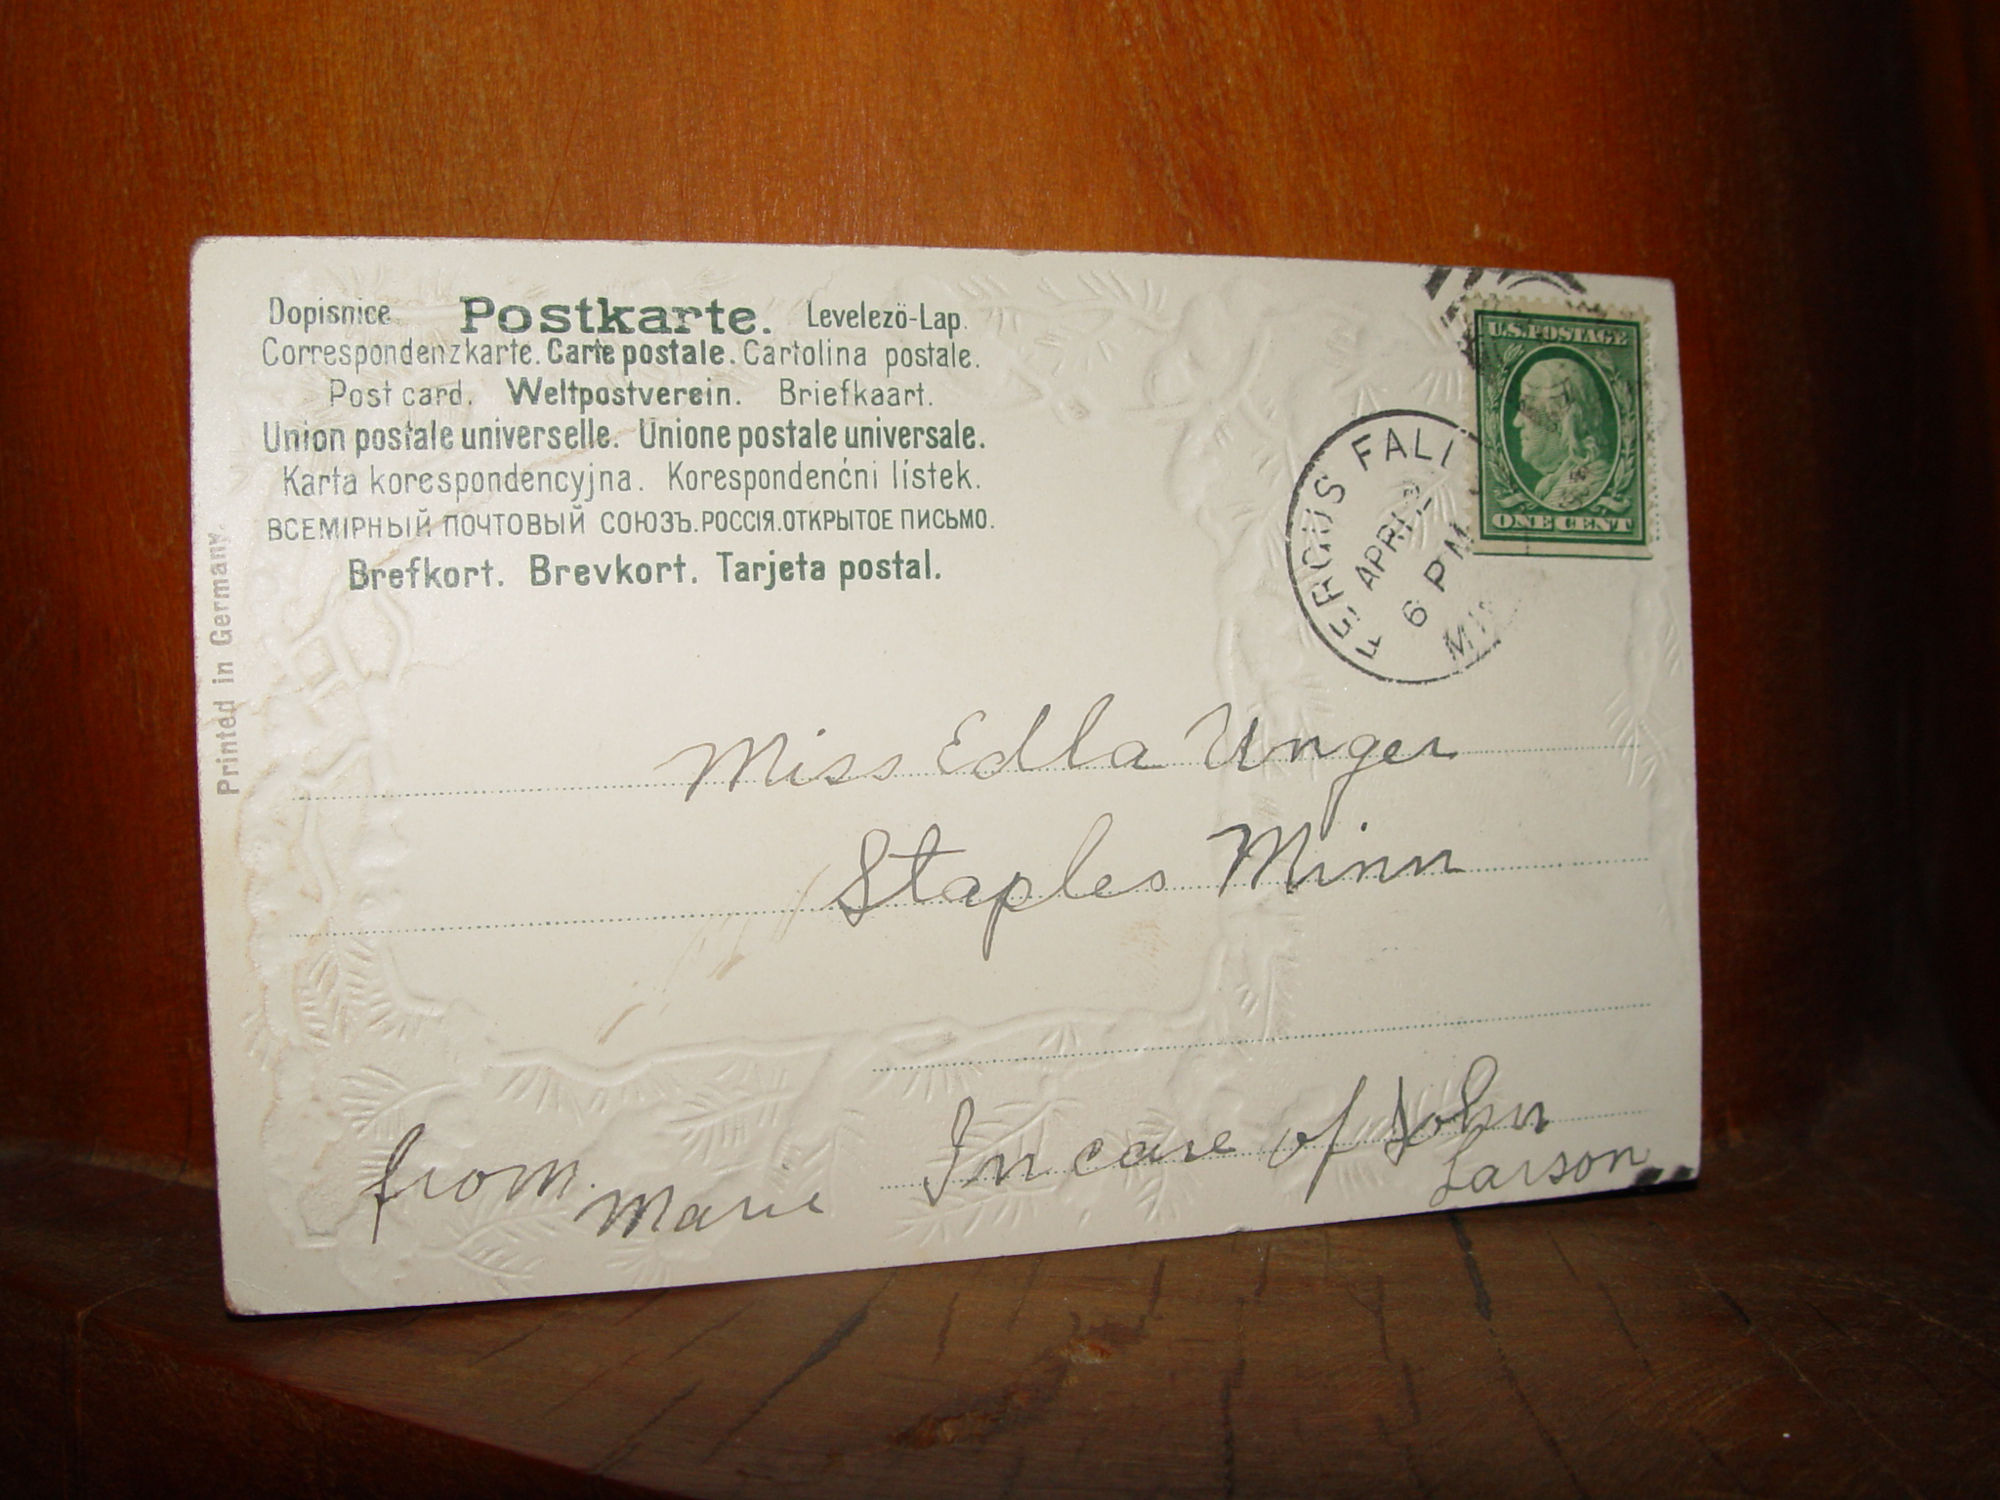 Dopisnice. Postkarte. Levelezö-Lap.
Correspondenzkarte. Carte postale. Cartolina postale.
Post card. Weltpostverein. Briefkaart.
Union postale universelle. Unione postale universale.
Karta korespondencyjna. Korespondenćni lístek.
ВСЕМІРНЫЙ ПОЧТОВЫЙ СОЮЗЪ. РОССІЯ. ОТКРЫТОЕ ПИСЬМО.
Brefkort. Brevkort. Tarjeta postal.
Printed in Germany.
U.S. POSTAGE
ONE CENT
FERGUS FALL
APR
6 PM
MIN
Miss Edla Unger
Staples Minn
from Marie
In care of John
Larson